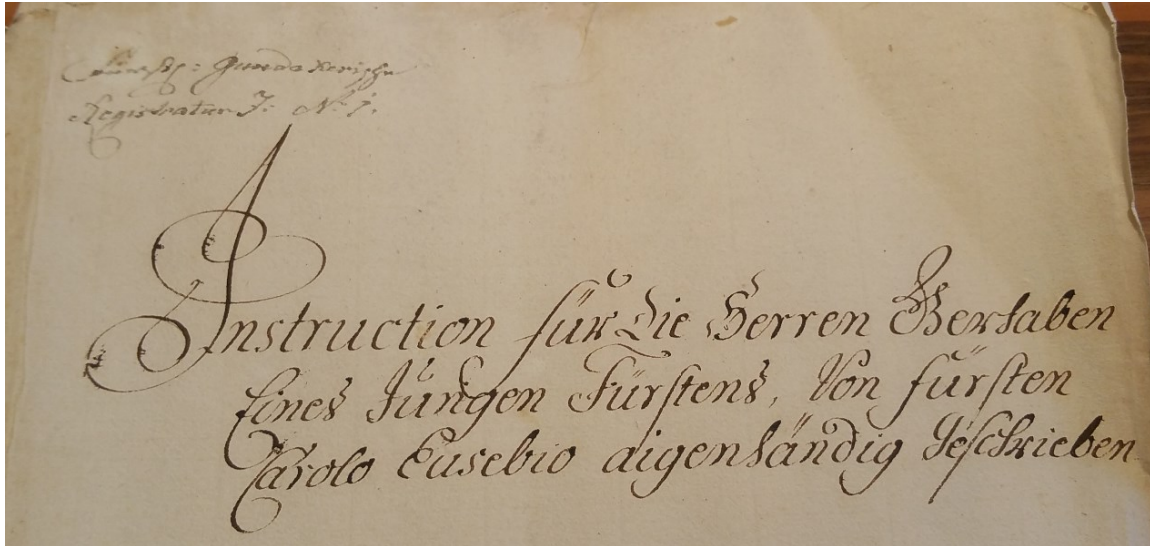 Fürstl: Gundakerische
Registratur J: No: 1.
Instruction für die Herren Gerhaben
Eines Jungen Fürstens, Von fürsten
Carolo Eusebio aigenhändig geschrieben